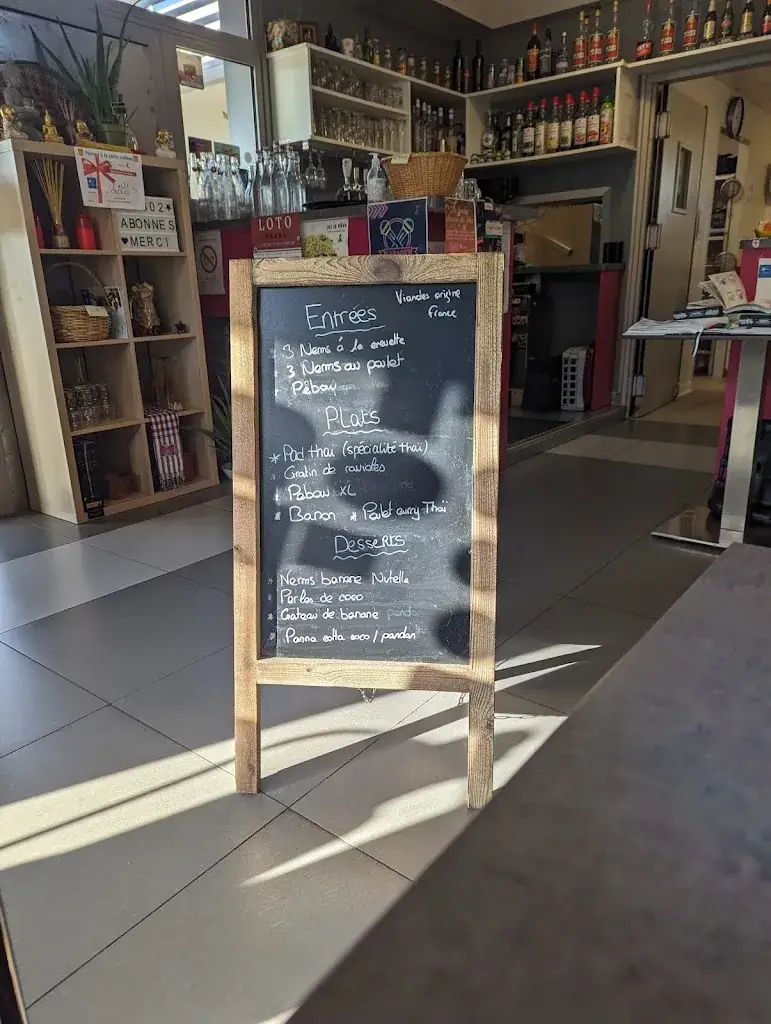 302
ABONNES
♥ MERCI
LOTO
Viandes origine
France
Entrées
3 Nems à la crevette
3 Nems au poulet
Pêbow
Plats
* Pad thai (spécialité thaï)
Gratin de ravioles
Pabow XL
Banon * Poulet curry Thaï
Desserts
* Nems banane Nutella
* Perles de coco
* Gateau de banane pandan
* Panna cotta coco / pandan